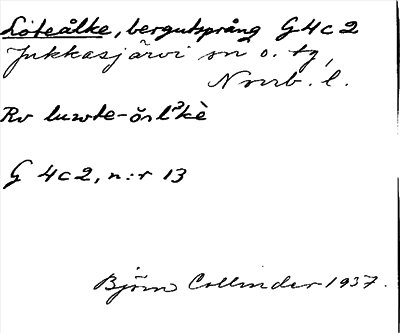 Loteålke, bergutsprång G 4 c 2
Jukkasjärvi sn o. tg,
Nrrb. l.
Rv luwte-
G 4 c 2, n:r 13
Björn Collinder 1937.